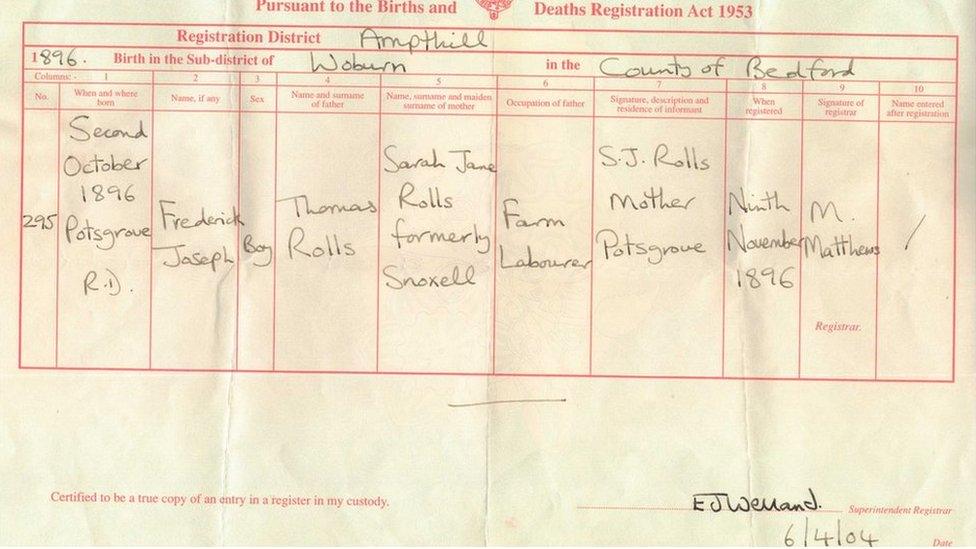 Pursuant to the Births and Deaths Registration Act 1953
Registration District Ampthill
1896. Birth in the Sub-district of Woburn in the County of Bedford
Columns:- 1 2 3 4 5 6 7 8 9 10
No. When and where born Name, if any Sex Name and surname of father Name, surname and maiden surname of mother Occupation of father Signature, description and residence of informant When registered Signature of registrar Name entered after registration
295
Second
October
1896
Potsgrove
R.D.
Frederick
Joseph
Boy
Thomas
Rolls
Sarah Jane
Rolls
formerly
Snoxell
Farm
Labourer
S.J. Rolls
Mother
Potsgrove
Ninth
November
1896
M.
Matthews
Registrar.
/
Certified to be a true copy of an entry in a register in my custody.
EJWelland. Superintendent Registrar
6/4/04 Date